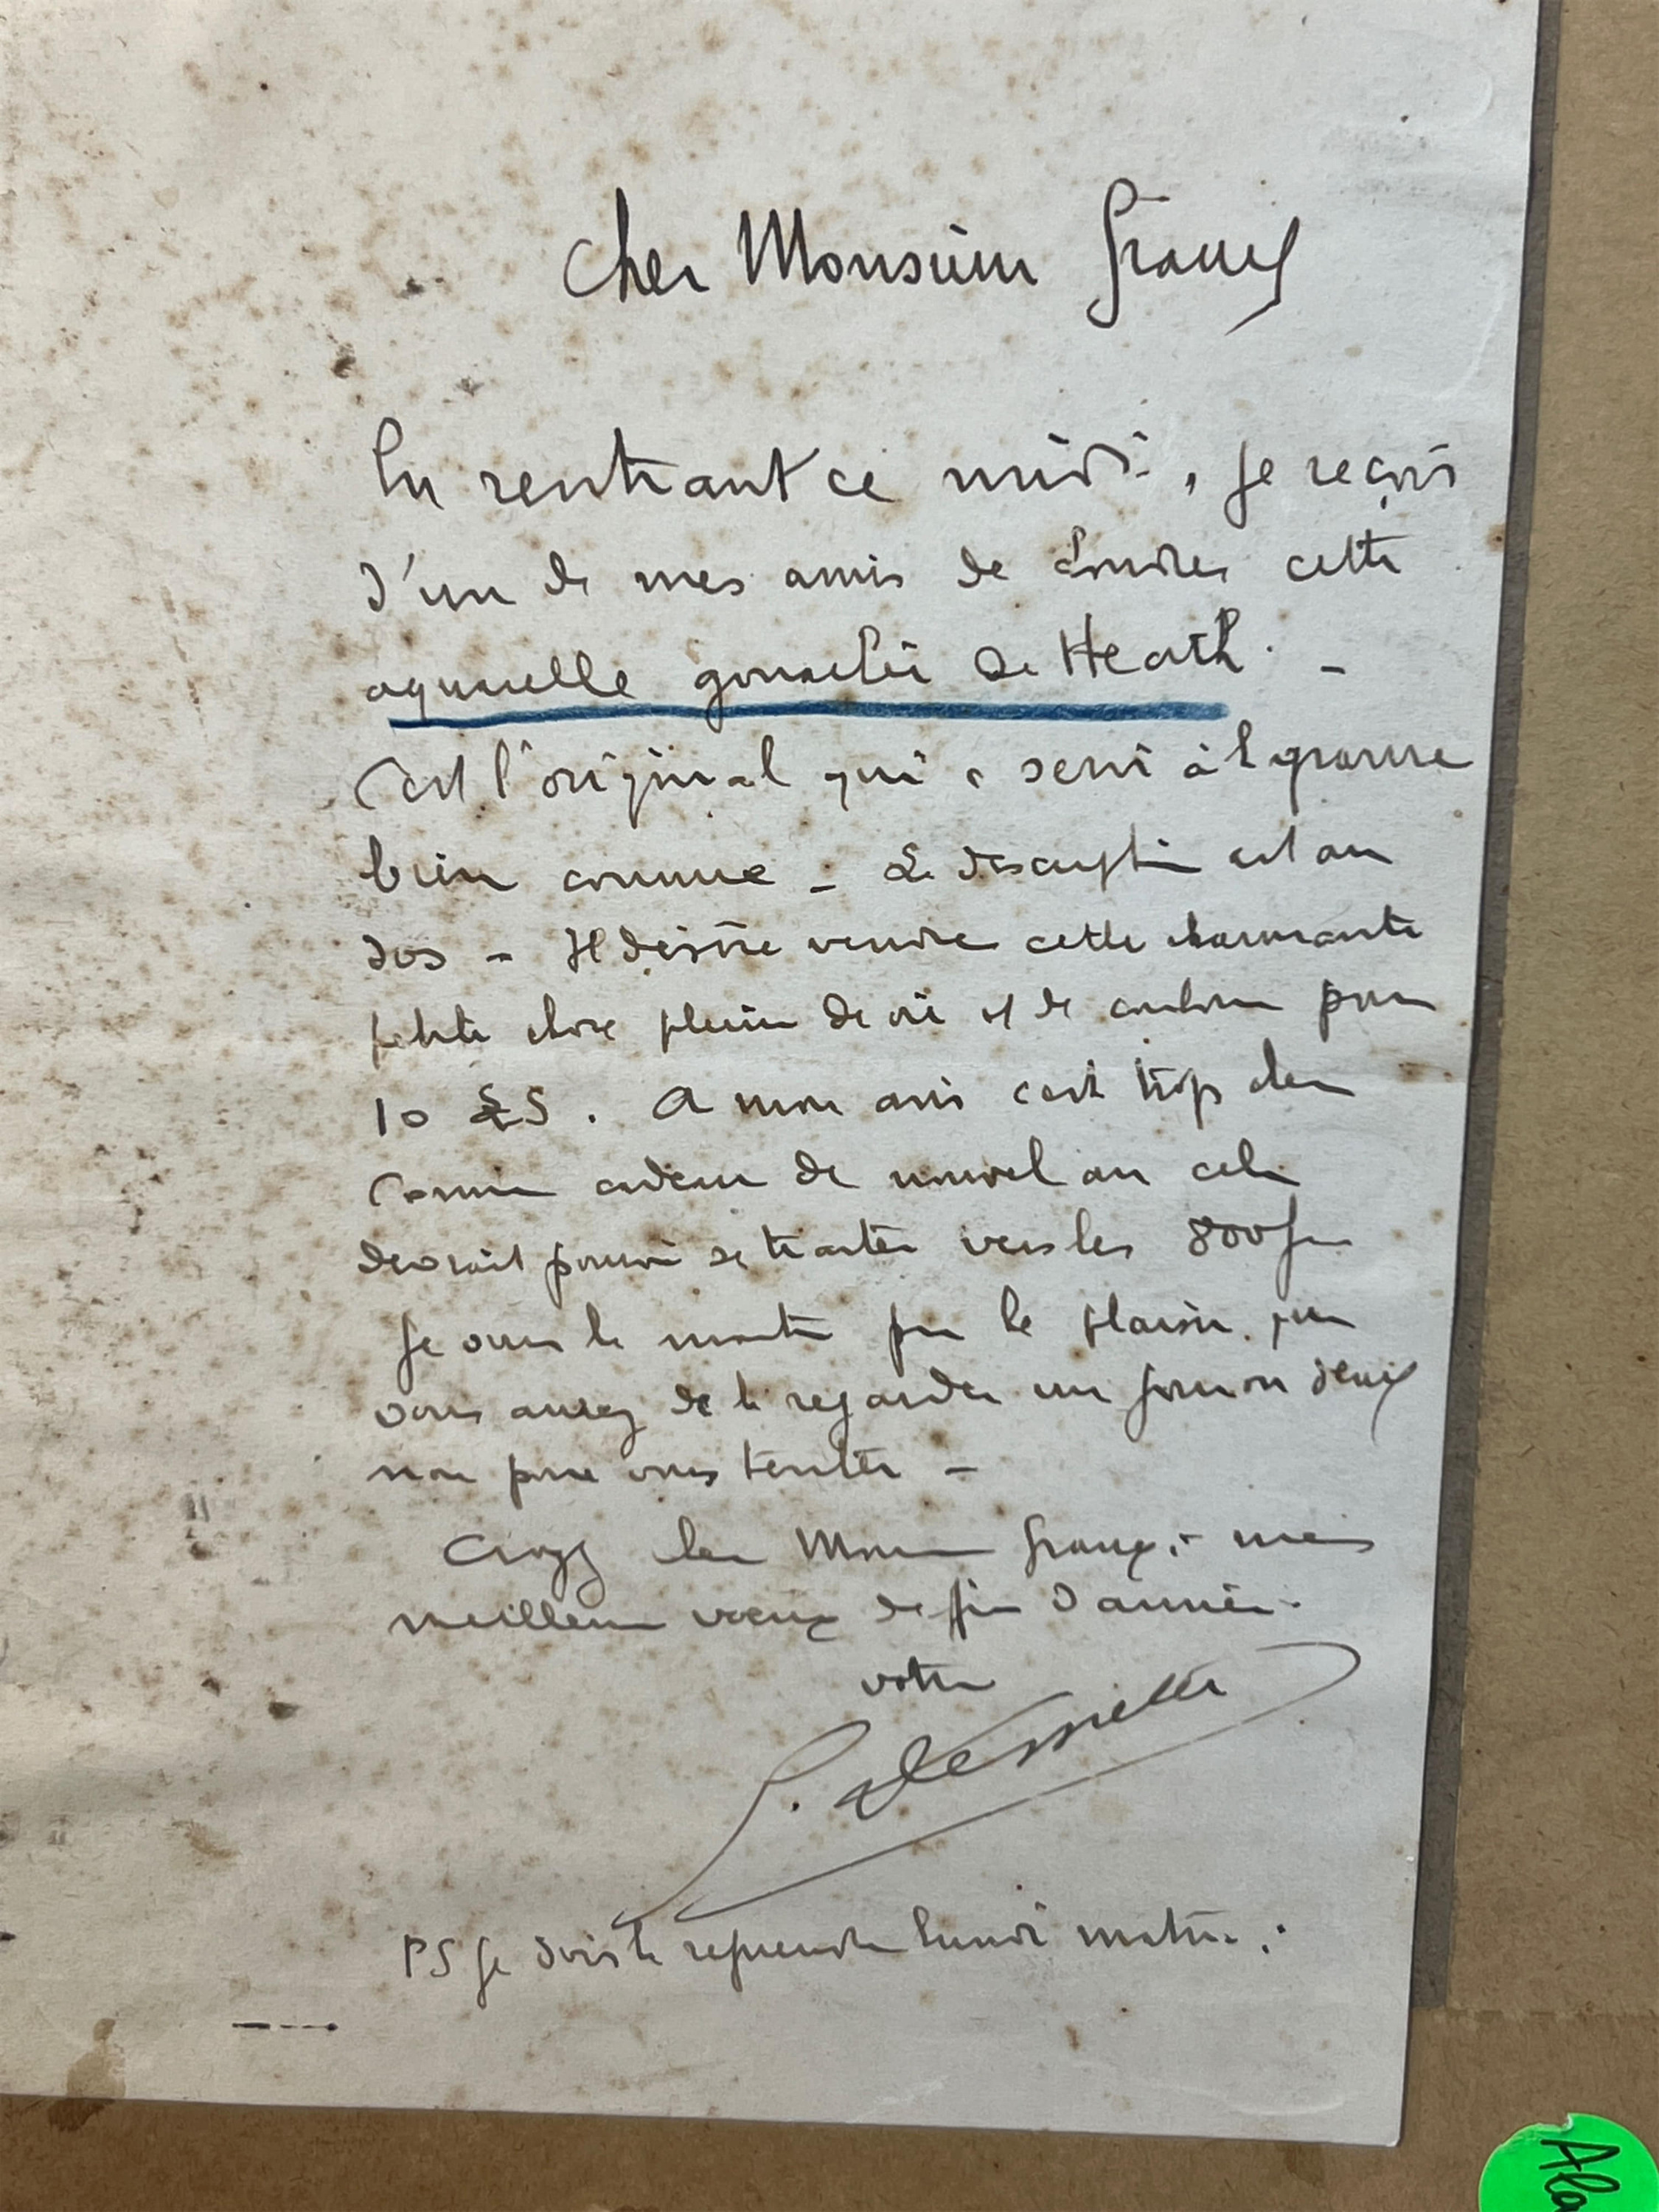 Cher Monsieur Graux
En rentrant ce midi, je reçois
d'un de mes amis de Londres cette
aquarelle gouachée de Heath. -
C'est l'original qui a servi à la gravure
bien connue - La description est au
dos - Il désire vendre cette charmante
petite chose pleine de vie et de couleur pour
10 £S. A mon avis c'est trop cher
comme cadeau de nouvel an cela
devrait pouvoir se traiter vers les 800 f
Je vous le montre pour le plaisir que
vous aurez de le regarder un jour ou deux
non pour vous tenter -
Croyez cher Monsieur Graux, à mes
meilleurs vœux de fin d'année.
votre
PS Je dois le reprendre lundi matin.
Ala